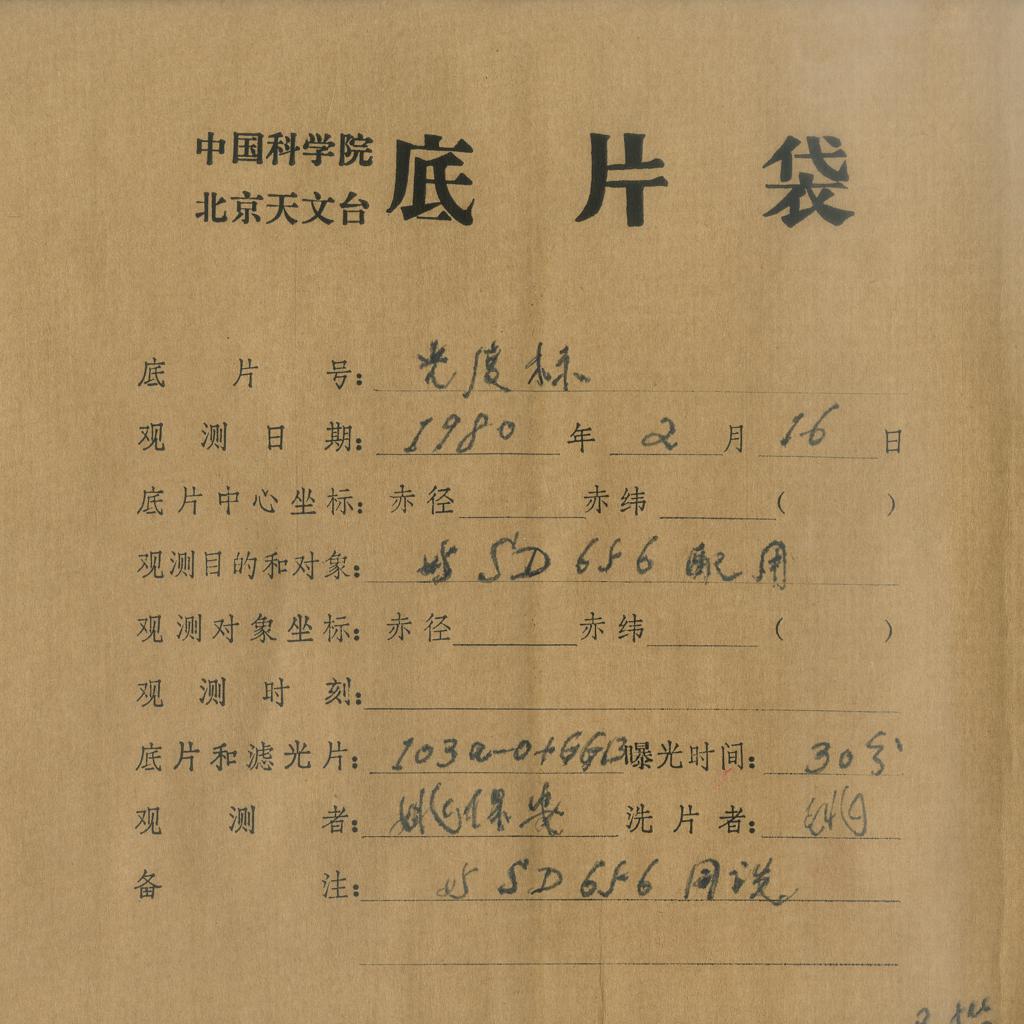 中国科学院
北京天文台
底片袋
底片号：光度标
观测日期：1980年2月16日
底片中心坐标：赤径 赤纬 （ ）
观测目的和对象：与SD656配用
观测对象坐标：赤径 赤纬 （ ）
观测时刻：
底片和滤光片：103a-0+GG13 曝光时间：30分
观测者：保安 洗片者：
备注：与SD656同洗